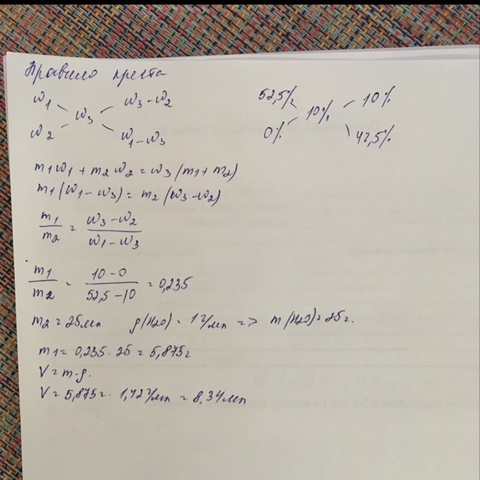 Правило креста
ω1 ω3 ω3-ω2 52,5% 10% 10%
ω2 ω1-ω3 0% 42,5%
m1ω1 + m2ω2 = ω3(m1+m2)
m1(ω1-ω3) = m2(ω3-ω2)
m1/m2 = (ω3-ω2)/(ω1-ω3)
m1/m2 = (10-0)/(52,5-10) = 0,235
m2 = 25мл ρ(H2O) = 1г/мл => m(H2O) = 25г.
m1 = 0,235 · 25 = 5,875г
V = m·ρ.
V = 5,875г · 1,42г/мл = 8,34мл